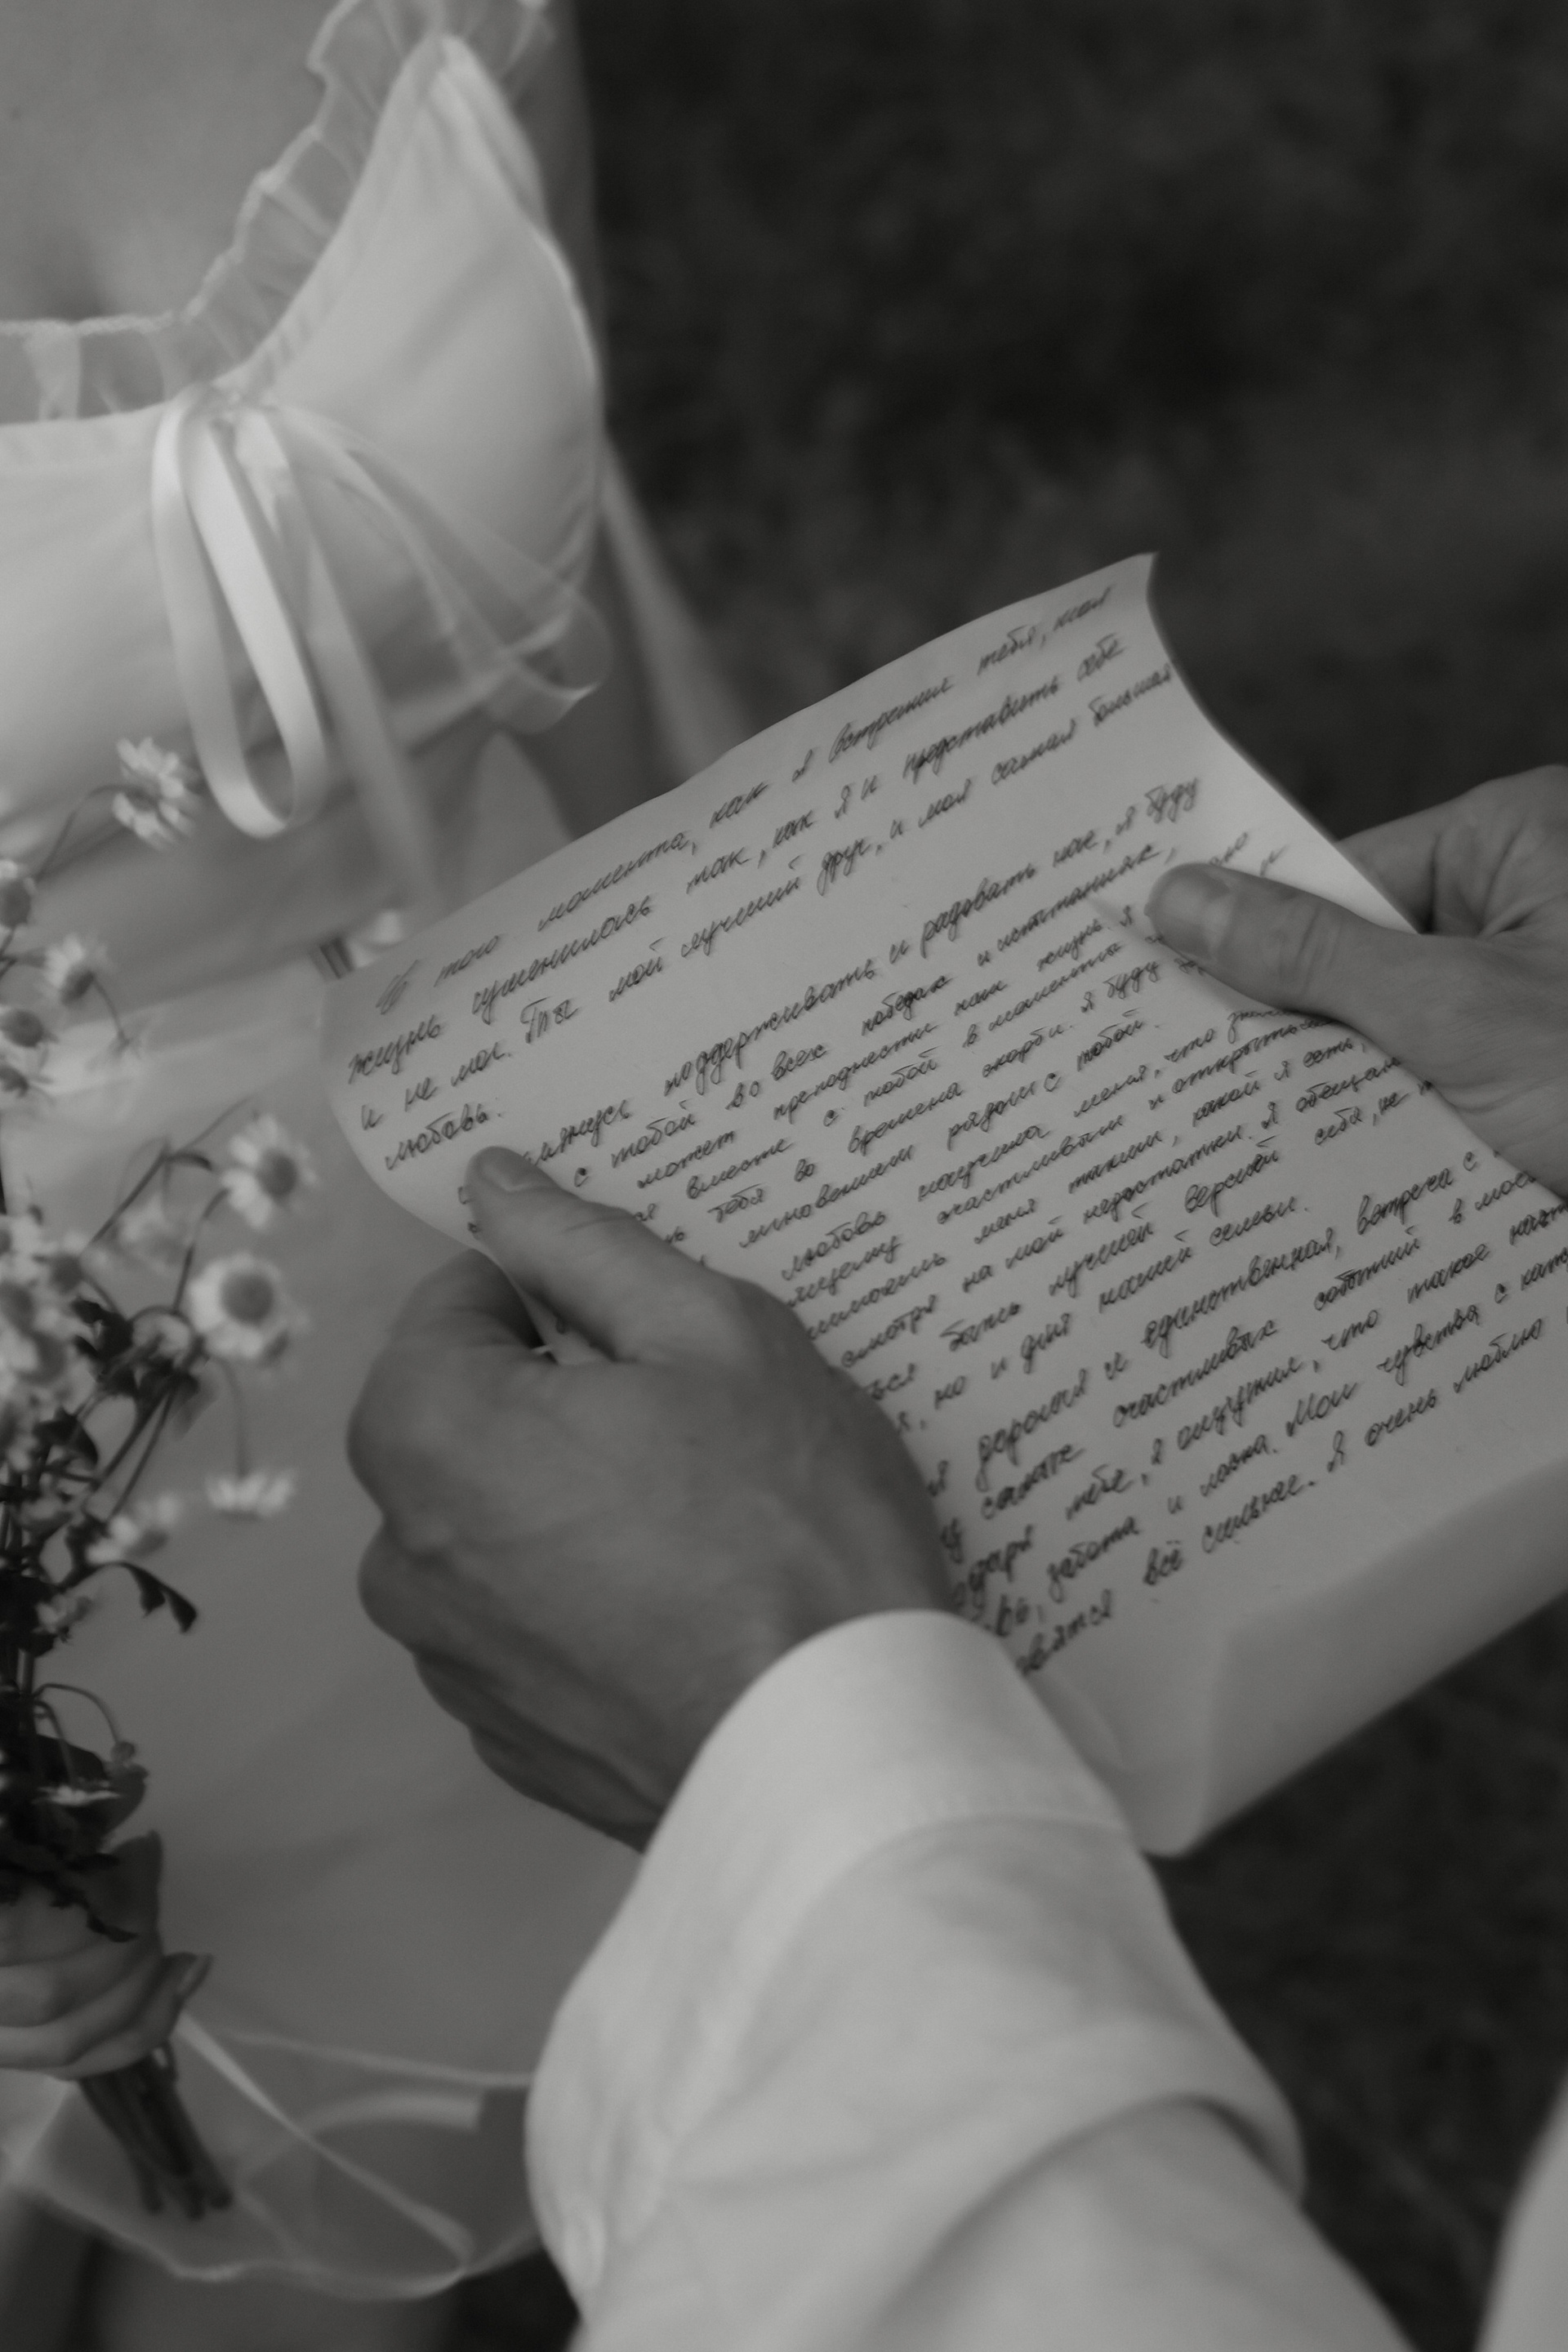 С того момента, как я встретил тебя, моя
жизнь изменилась так, как я и представить себе
и не мог. Ты мой лучший друг, и моя самая большая
любовь.
поддерживать и радовать нас, я буду
с тобой во всех победах и испытаниях,
может преподнести нам жизнь. Я
вместе с тобой в моменты
тебя во времена скорби. Я буду
мгновением рядом с тобой.
любовь научила меня, что
счастливым и открытым
меня таким, какой я есть,
смотря на мои недостатки. Я обещаю
быть лучшей версией себя, не
, но и для нашей семьи.
дорогая и единственная, встреча с
самых счастливых событий в моей
тебе, я ощутил, что такое
забота и ласка. Мои чувства с
всё сильнее. Я очень люблю